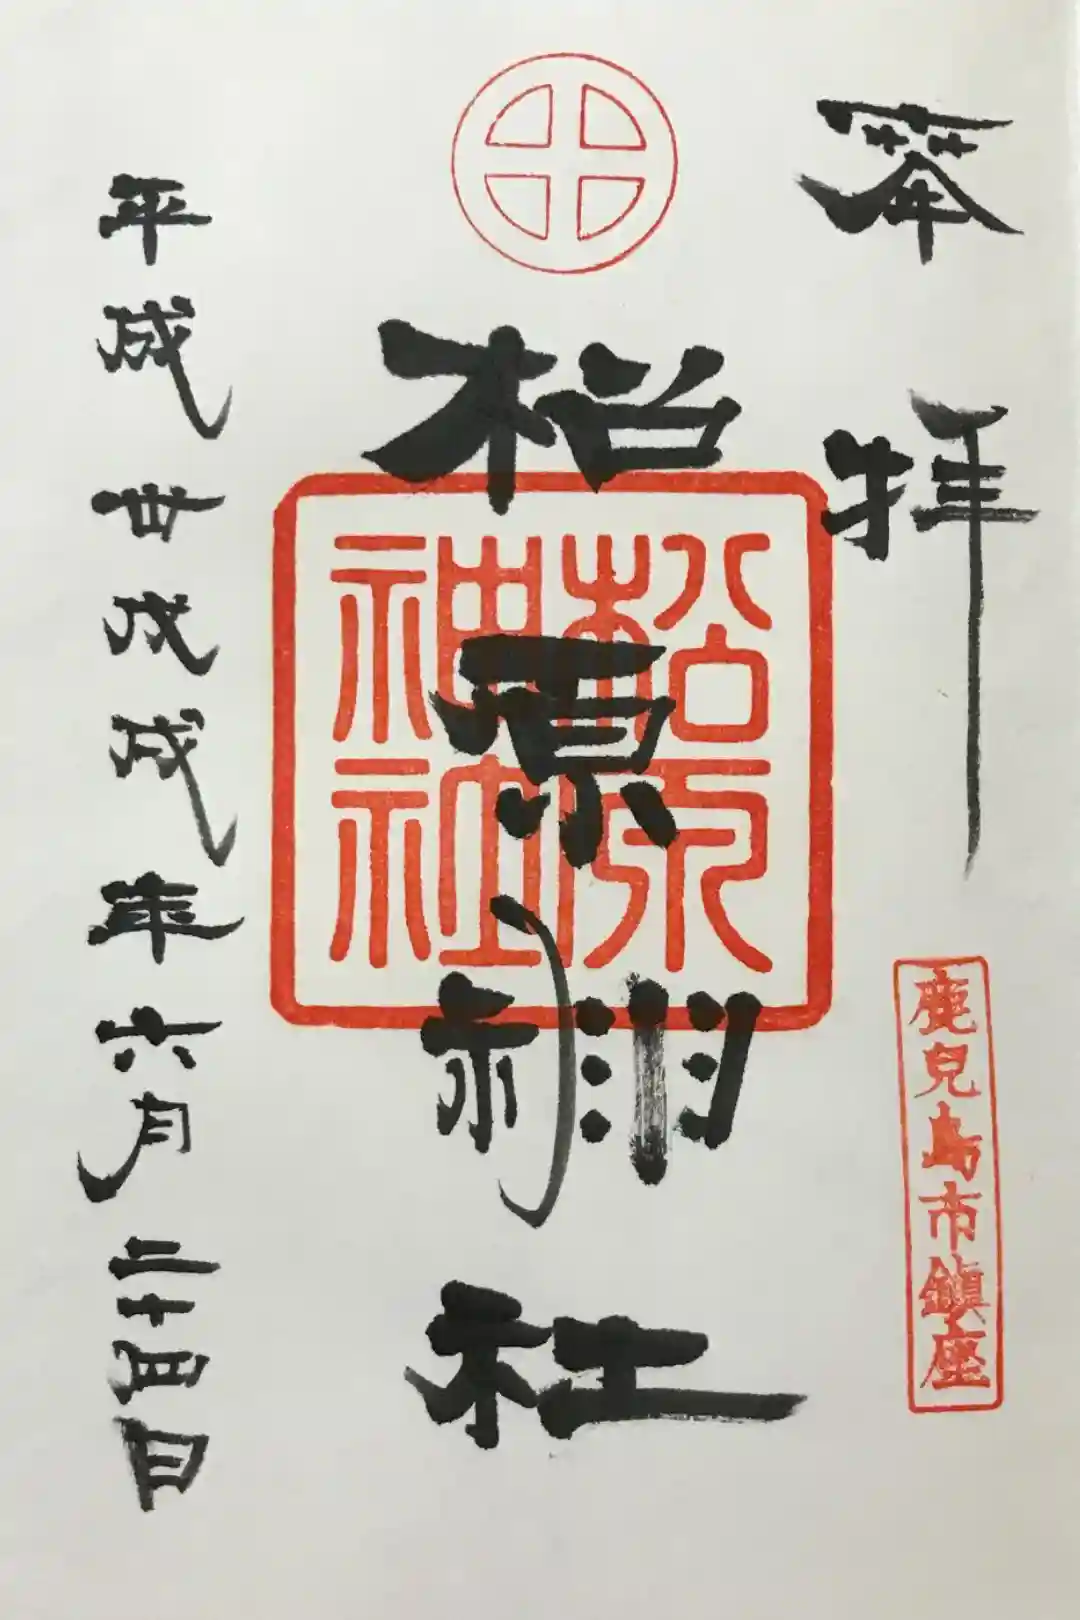 奉拝
鹿兒島市鎮座
松原神社
松原神社
平成卅戊戌年六月二十四日